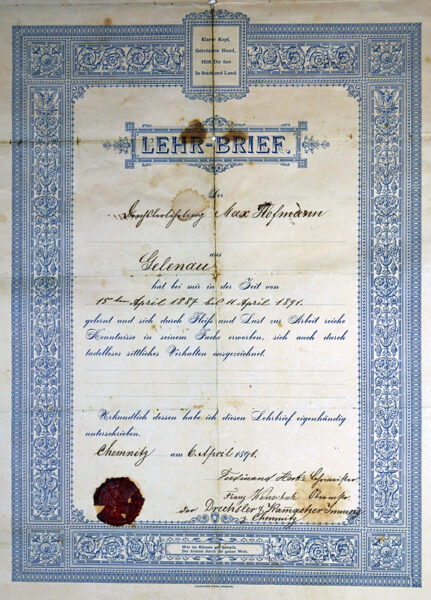 Klarer Kopf,
Geschickte Hand,
Hilft Dir fort
In Stadt und Land.
LEHR-BRIEF.
Der
Drechslerlehrling Max Hofmann
aus
Gelenau
hat bei mir in der Zeit von
15ten April 1887 bis 11 April 1891.
gelernt und sich durch Fleiß und Lust zur Arbeit reiche
Kenntnisse in seinem Fache erworben, sich auch durch
tadelloses sittliches Verhalten ausgezeichnet.
Urkundlich dessen habe ich diesen Lehrbrief eigenhändig
unterschrieben.
Chemnitz am 6 April 1891.
Ferdinand Lehrmeister
Franz Obermstr
der Drechsler & Kamacher Innung
z. Chemnitz
Wer im Kleinen gut besteht,
Der kommt durch die ganze Welt.